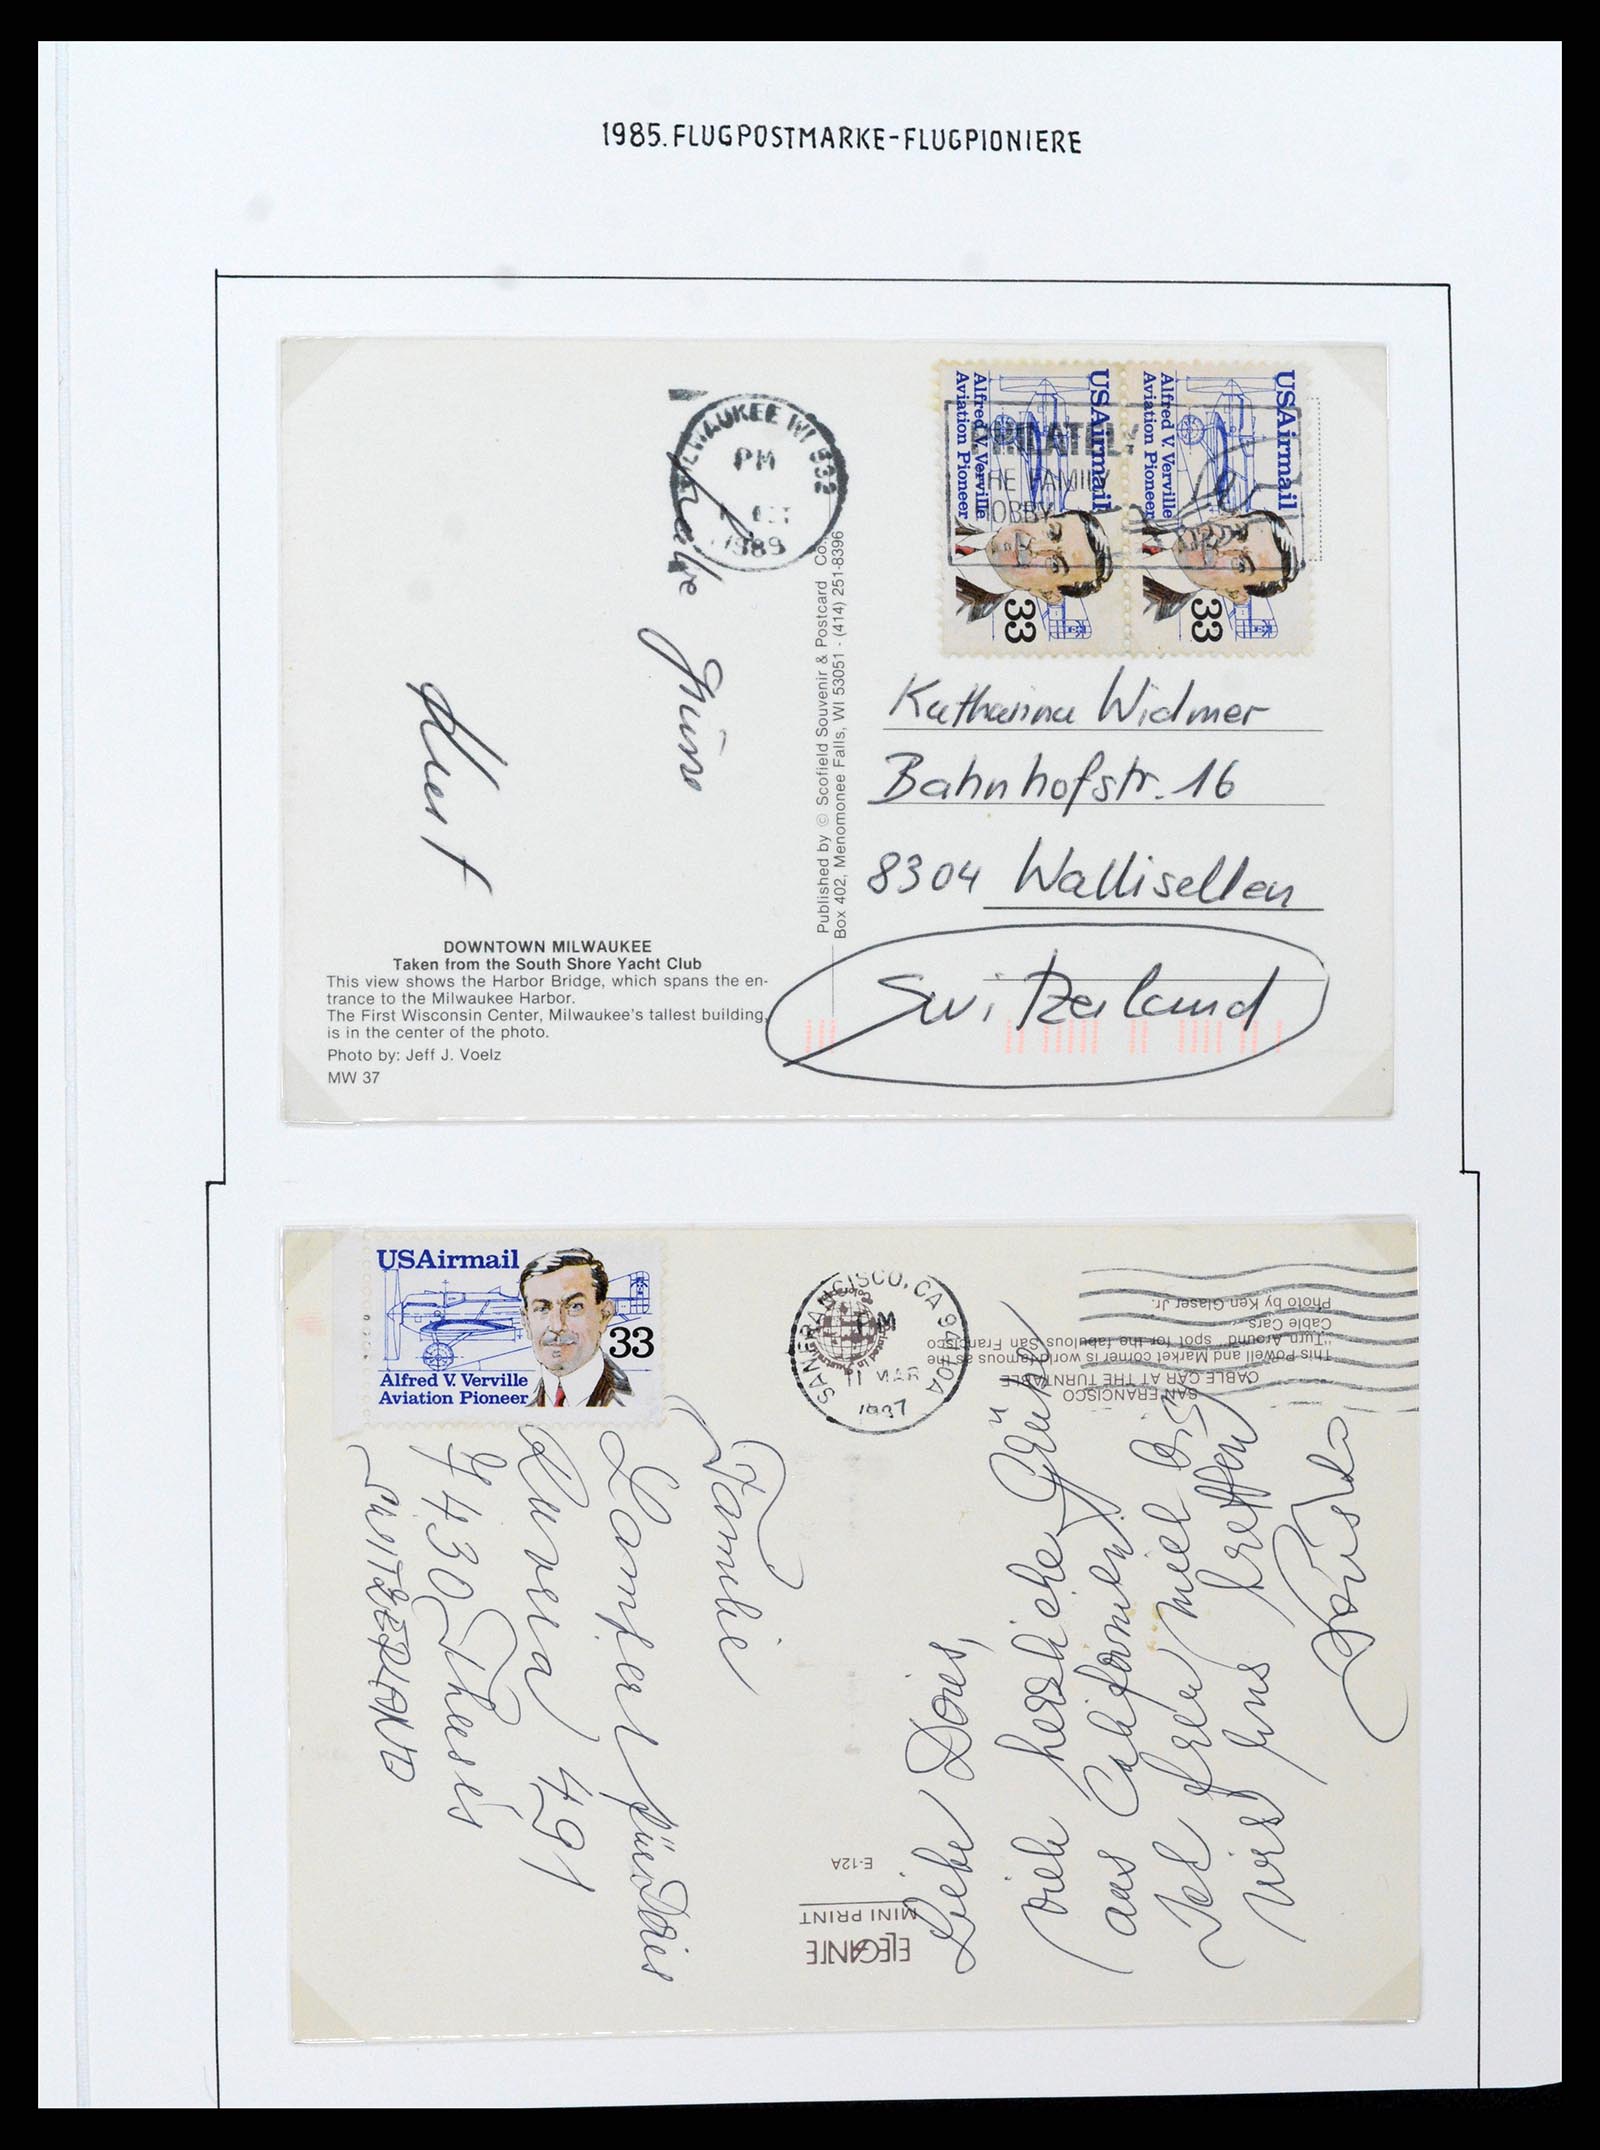 1985.FLUGPOSTMARKE-FLUGPIONIERE
USAirmail
Alfred V. Verville
Aviation Pioneer
33
USAirmail
Alfred V. Verville
Aviation Pioneer
33
PHILATELY
THE FAMILY
HOBBY
MILWAUKEE WI 532
PM
OCT
1989
Liebe Grüsse
Published by © Scofield Souvenir & Postcard Co.
Box 402, Menomonee Falls, WI 53051 - (414) 251-8396
Katharina Widmer
Bahnhofstr. 16
8304 Wallisellen
Switzerland
DOWNTOWN MILWAUKEE
Taken from the South Shore Yacht Club
This view shows the Harbor Bridge, which spans the en-
trance to the Milwaukee Harbor.
The First Wisconsin Center, Milwaukee's tallest building,
is in the center of the photo.
Photo by: Jeff J. Voelz
MW 37
USAirmail
33
Alfred V. Verville
Aviation Pioneer
SAN FRANCISCO, CA 940A
PM
11 MAR
1987
SAN FRANCISCO
CABLE CAR AT THE TURNTABLE
This Powell and Market corner is world famous as the
"Turn Around" spot for the fabulous San Francisco
Cable Cars
Photo by Ken Glaser Jr.
Familie
Lampert für Doris
491
Thusis
SWITZERLAND
Liebe Doris,
Viele herzliche Grüße
aus Californien.
Ich freu mich bis
wir uns treffen
ELEGANTE
MINI PRINT
E-12A